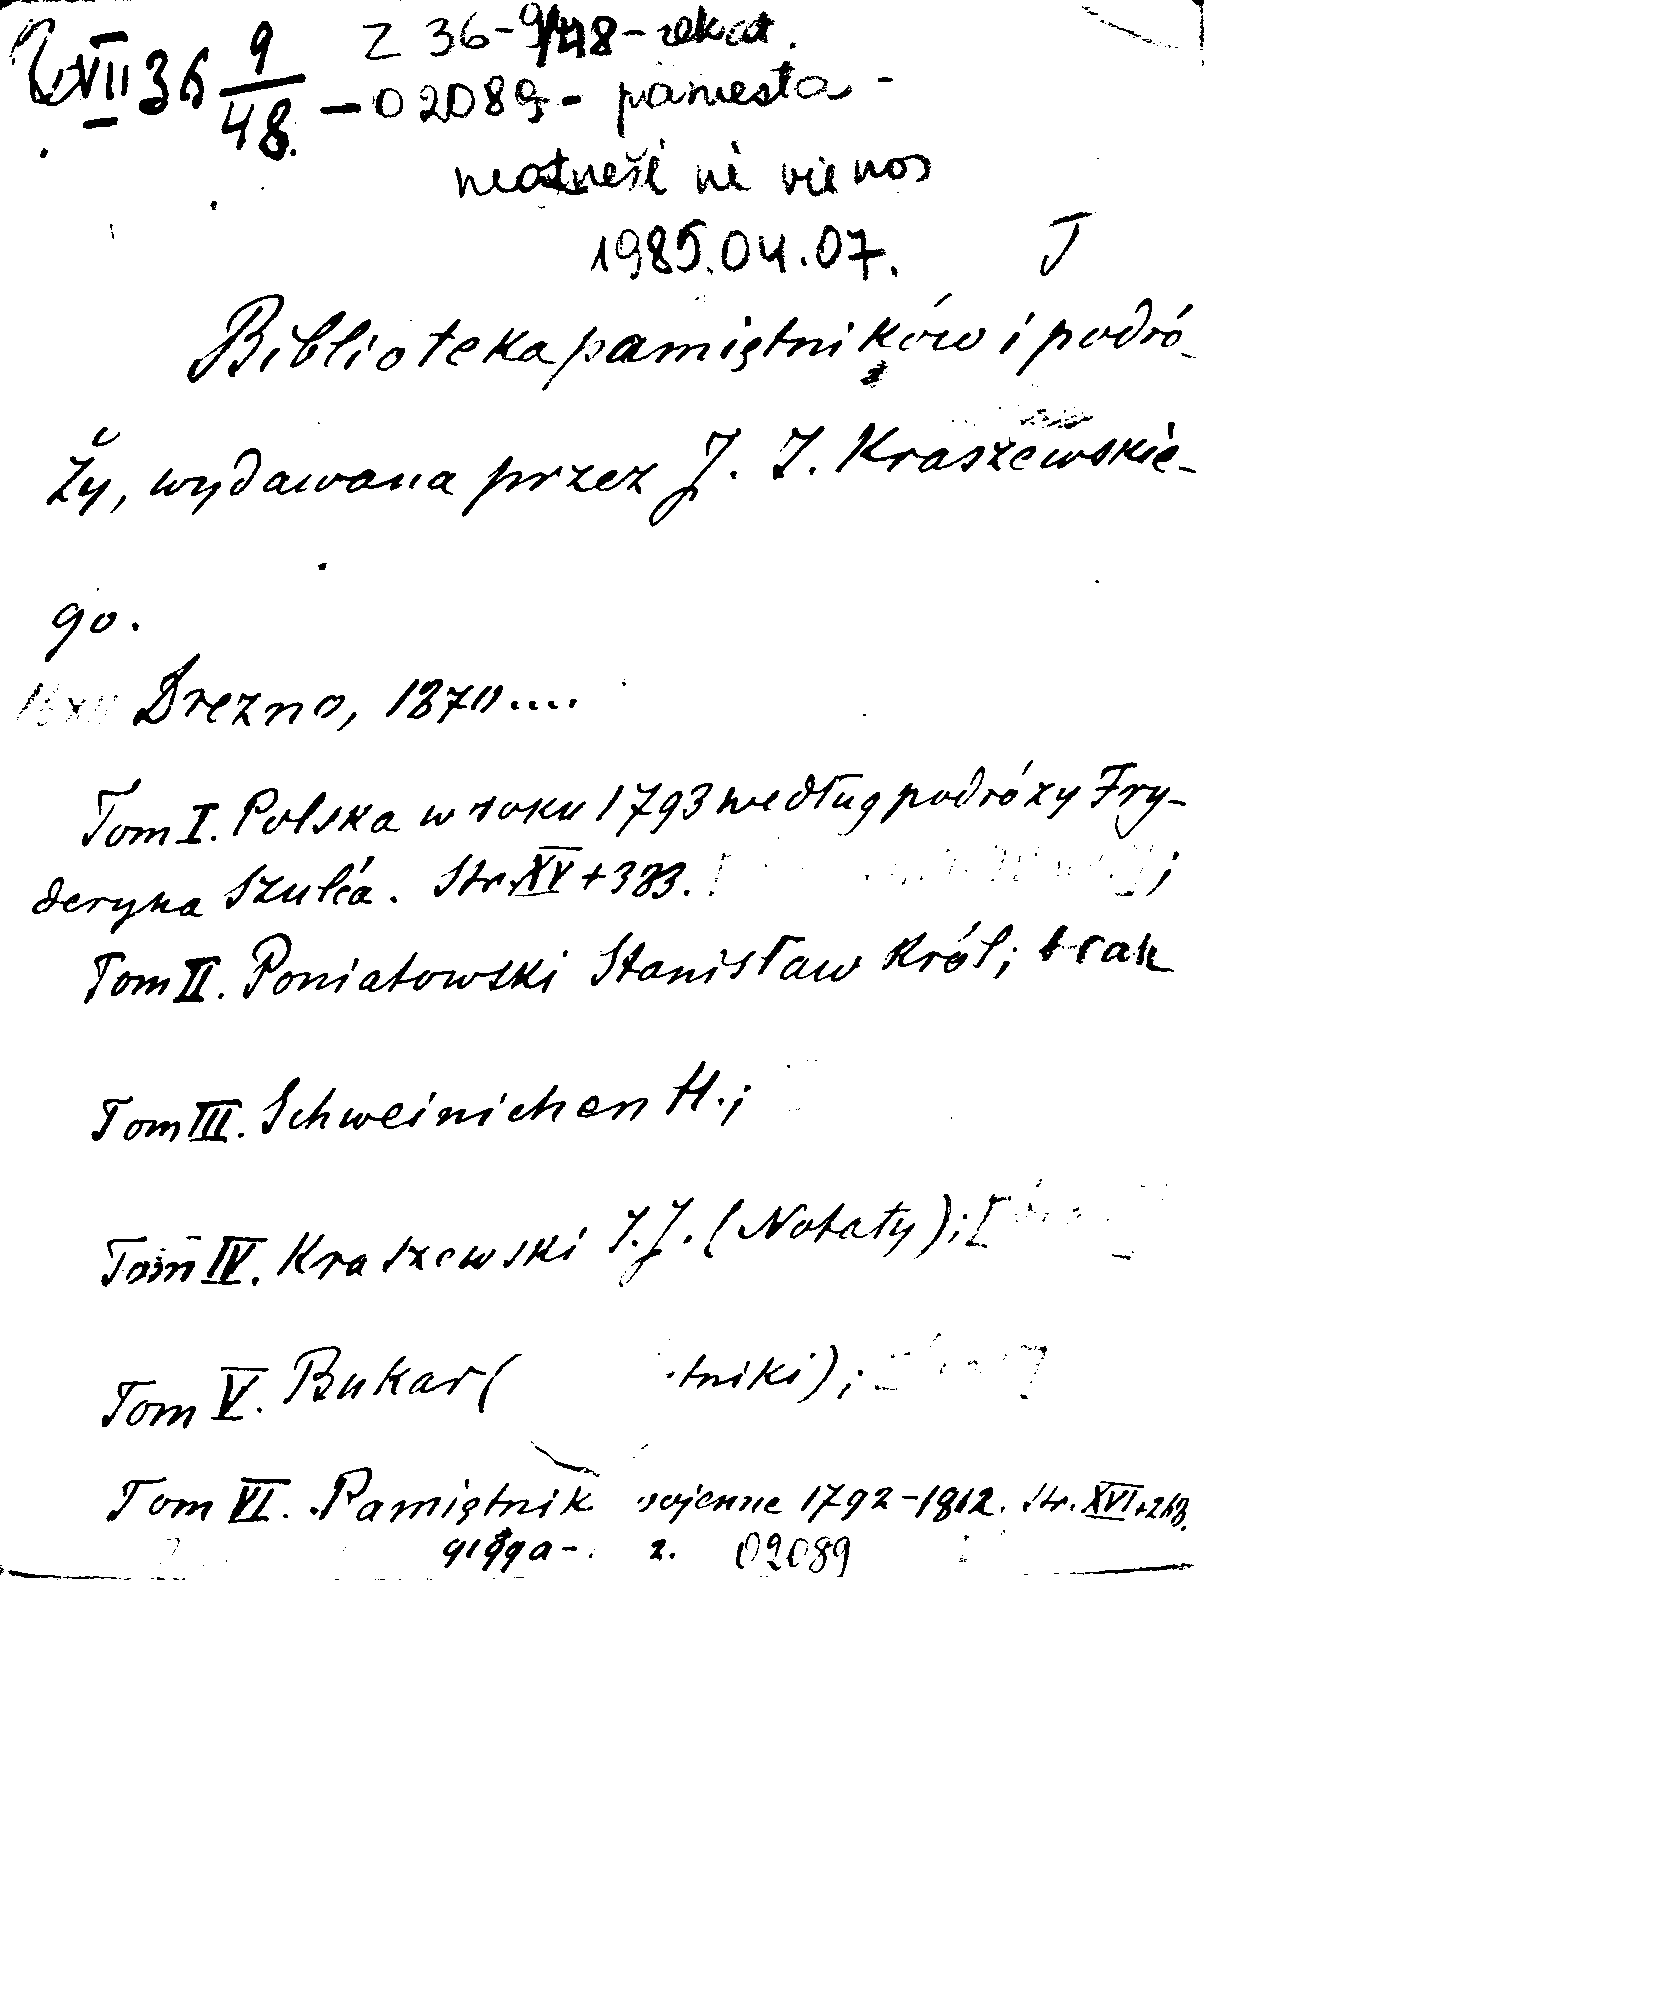 VII 36 9/48. Z 36-9/48-
-02089- pamesta -
neatnešė nė vienos
1985.04.07. J
Biblioteka pamiętników i podró-
ży, wydawana przez J. I. Kraszewskie-
go.
Drezno, 1870....
Tom I. Polska w roku 1793 według podróży Fry-
deryka Szulca. Str. XV+383. ;
Tom II. Poniatowski Stanisław Król; brak
Tom III. Schweinichen H.;
Tom IV. Kraszewski I. J. (Notaty); [
Tom V. Bukar ( tniki);
Tom VI. Pamiętnik wojenne 1792-1812. Str. XVI+
02089